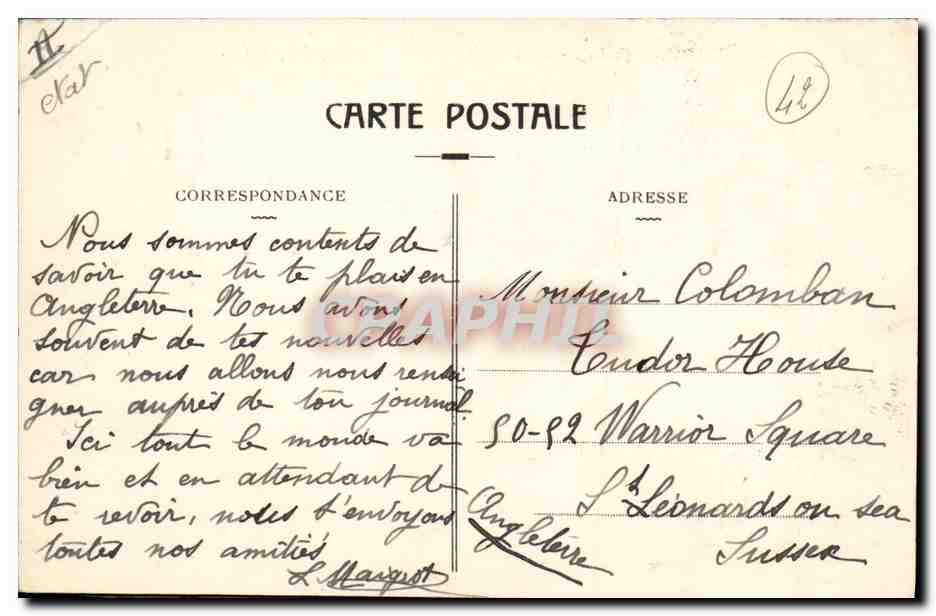 42
CARTE POSTALE
CORRESPONDANCE
Nous sommes contents de
savoir que tu te plais en
Angleterre. Nous avons
souvent de tes nouvelles
car nous allons nous rensei
gner auprès de ton journal.
Ici tout le monde va
bien et en attendant de
te revoir, nous t'envoyons
toutes nos amitiés
L Maigrot
ADRESSE
Monsieur Colomban
Tudor House
50-52 Warrior Square
St Léonards on sea
Sussex
Angleterre
CPAPHIL